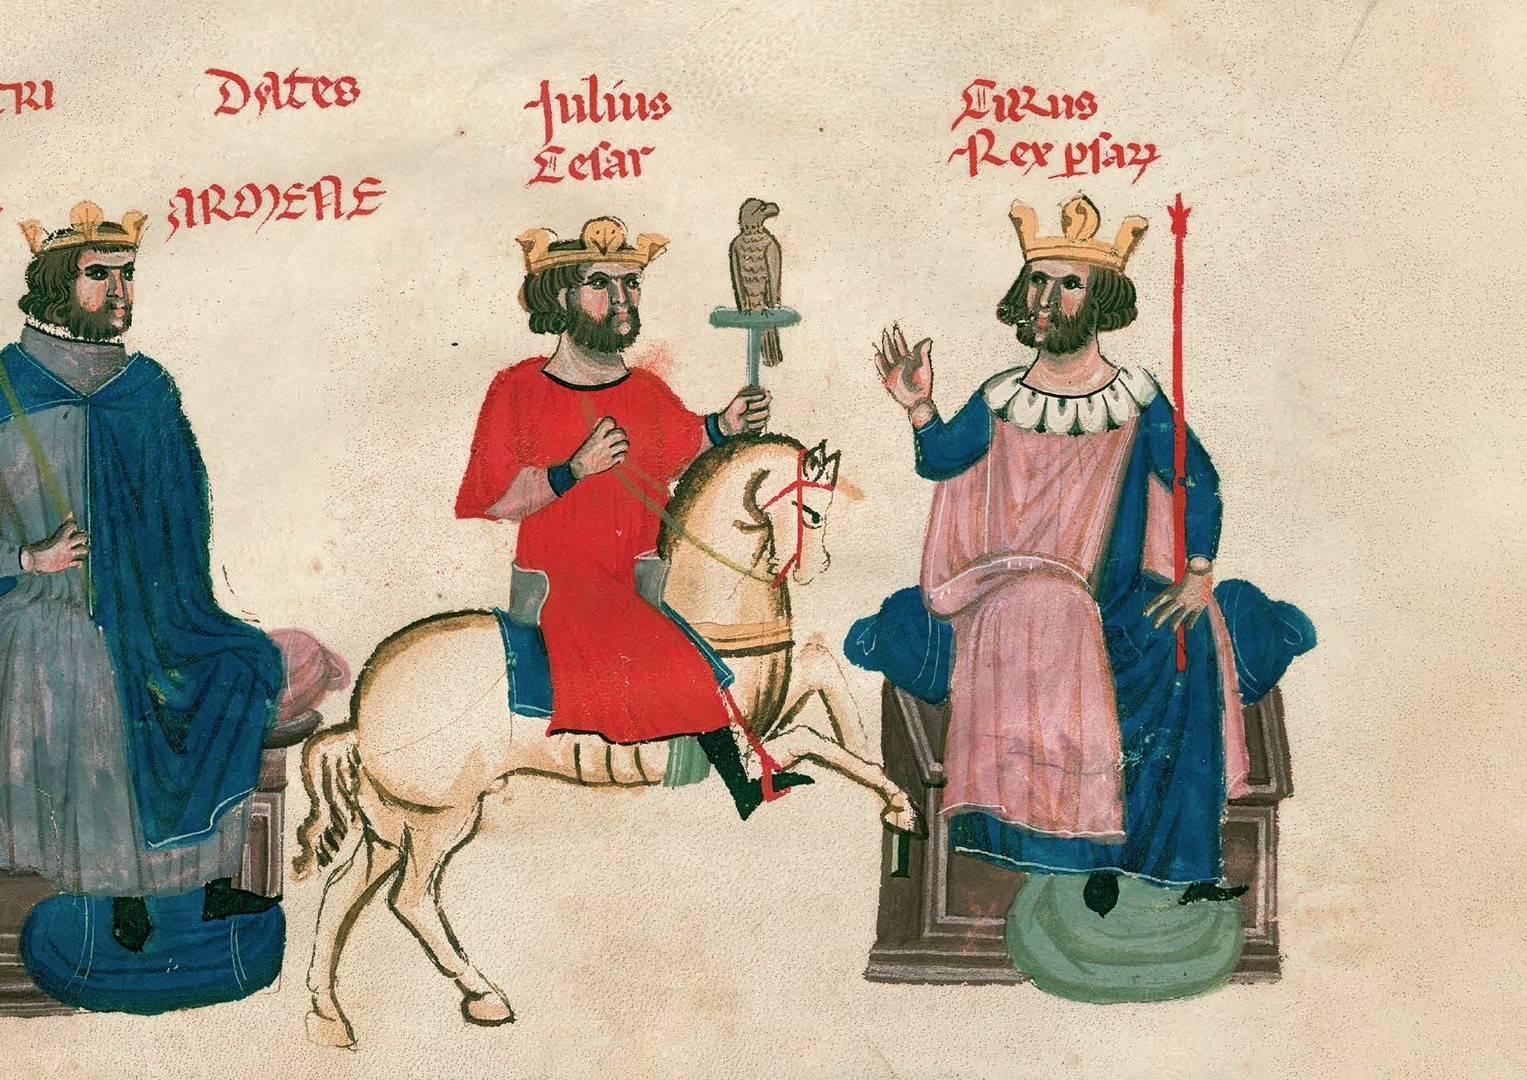 TRI
Dates
ARMENE
Julius
Cesar
Cirus
Rex psaꝝ